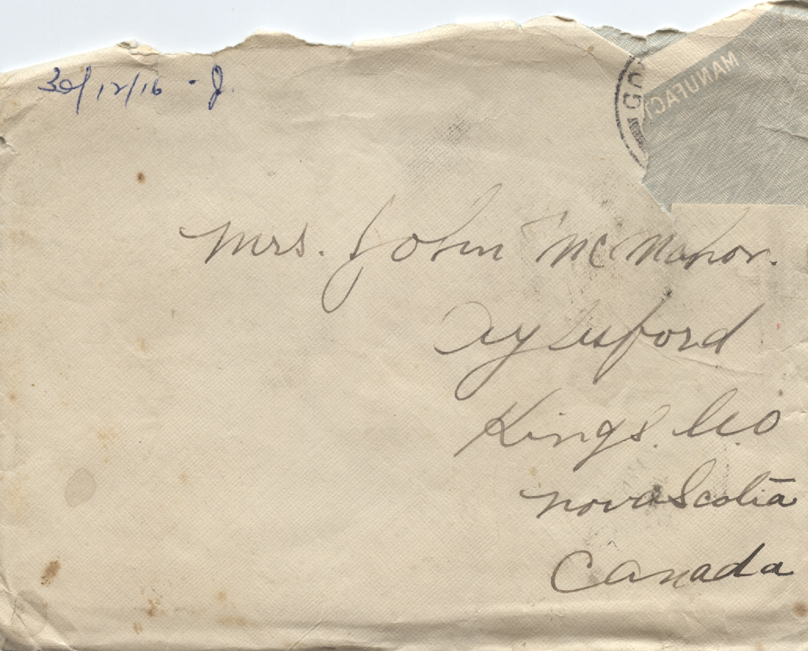 30/12/16 - J.
MANUFACT
Mrs. John McManor.
Aylesford
Kings. Co
Nova Scotia
Canada